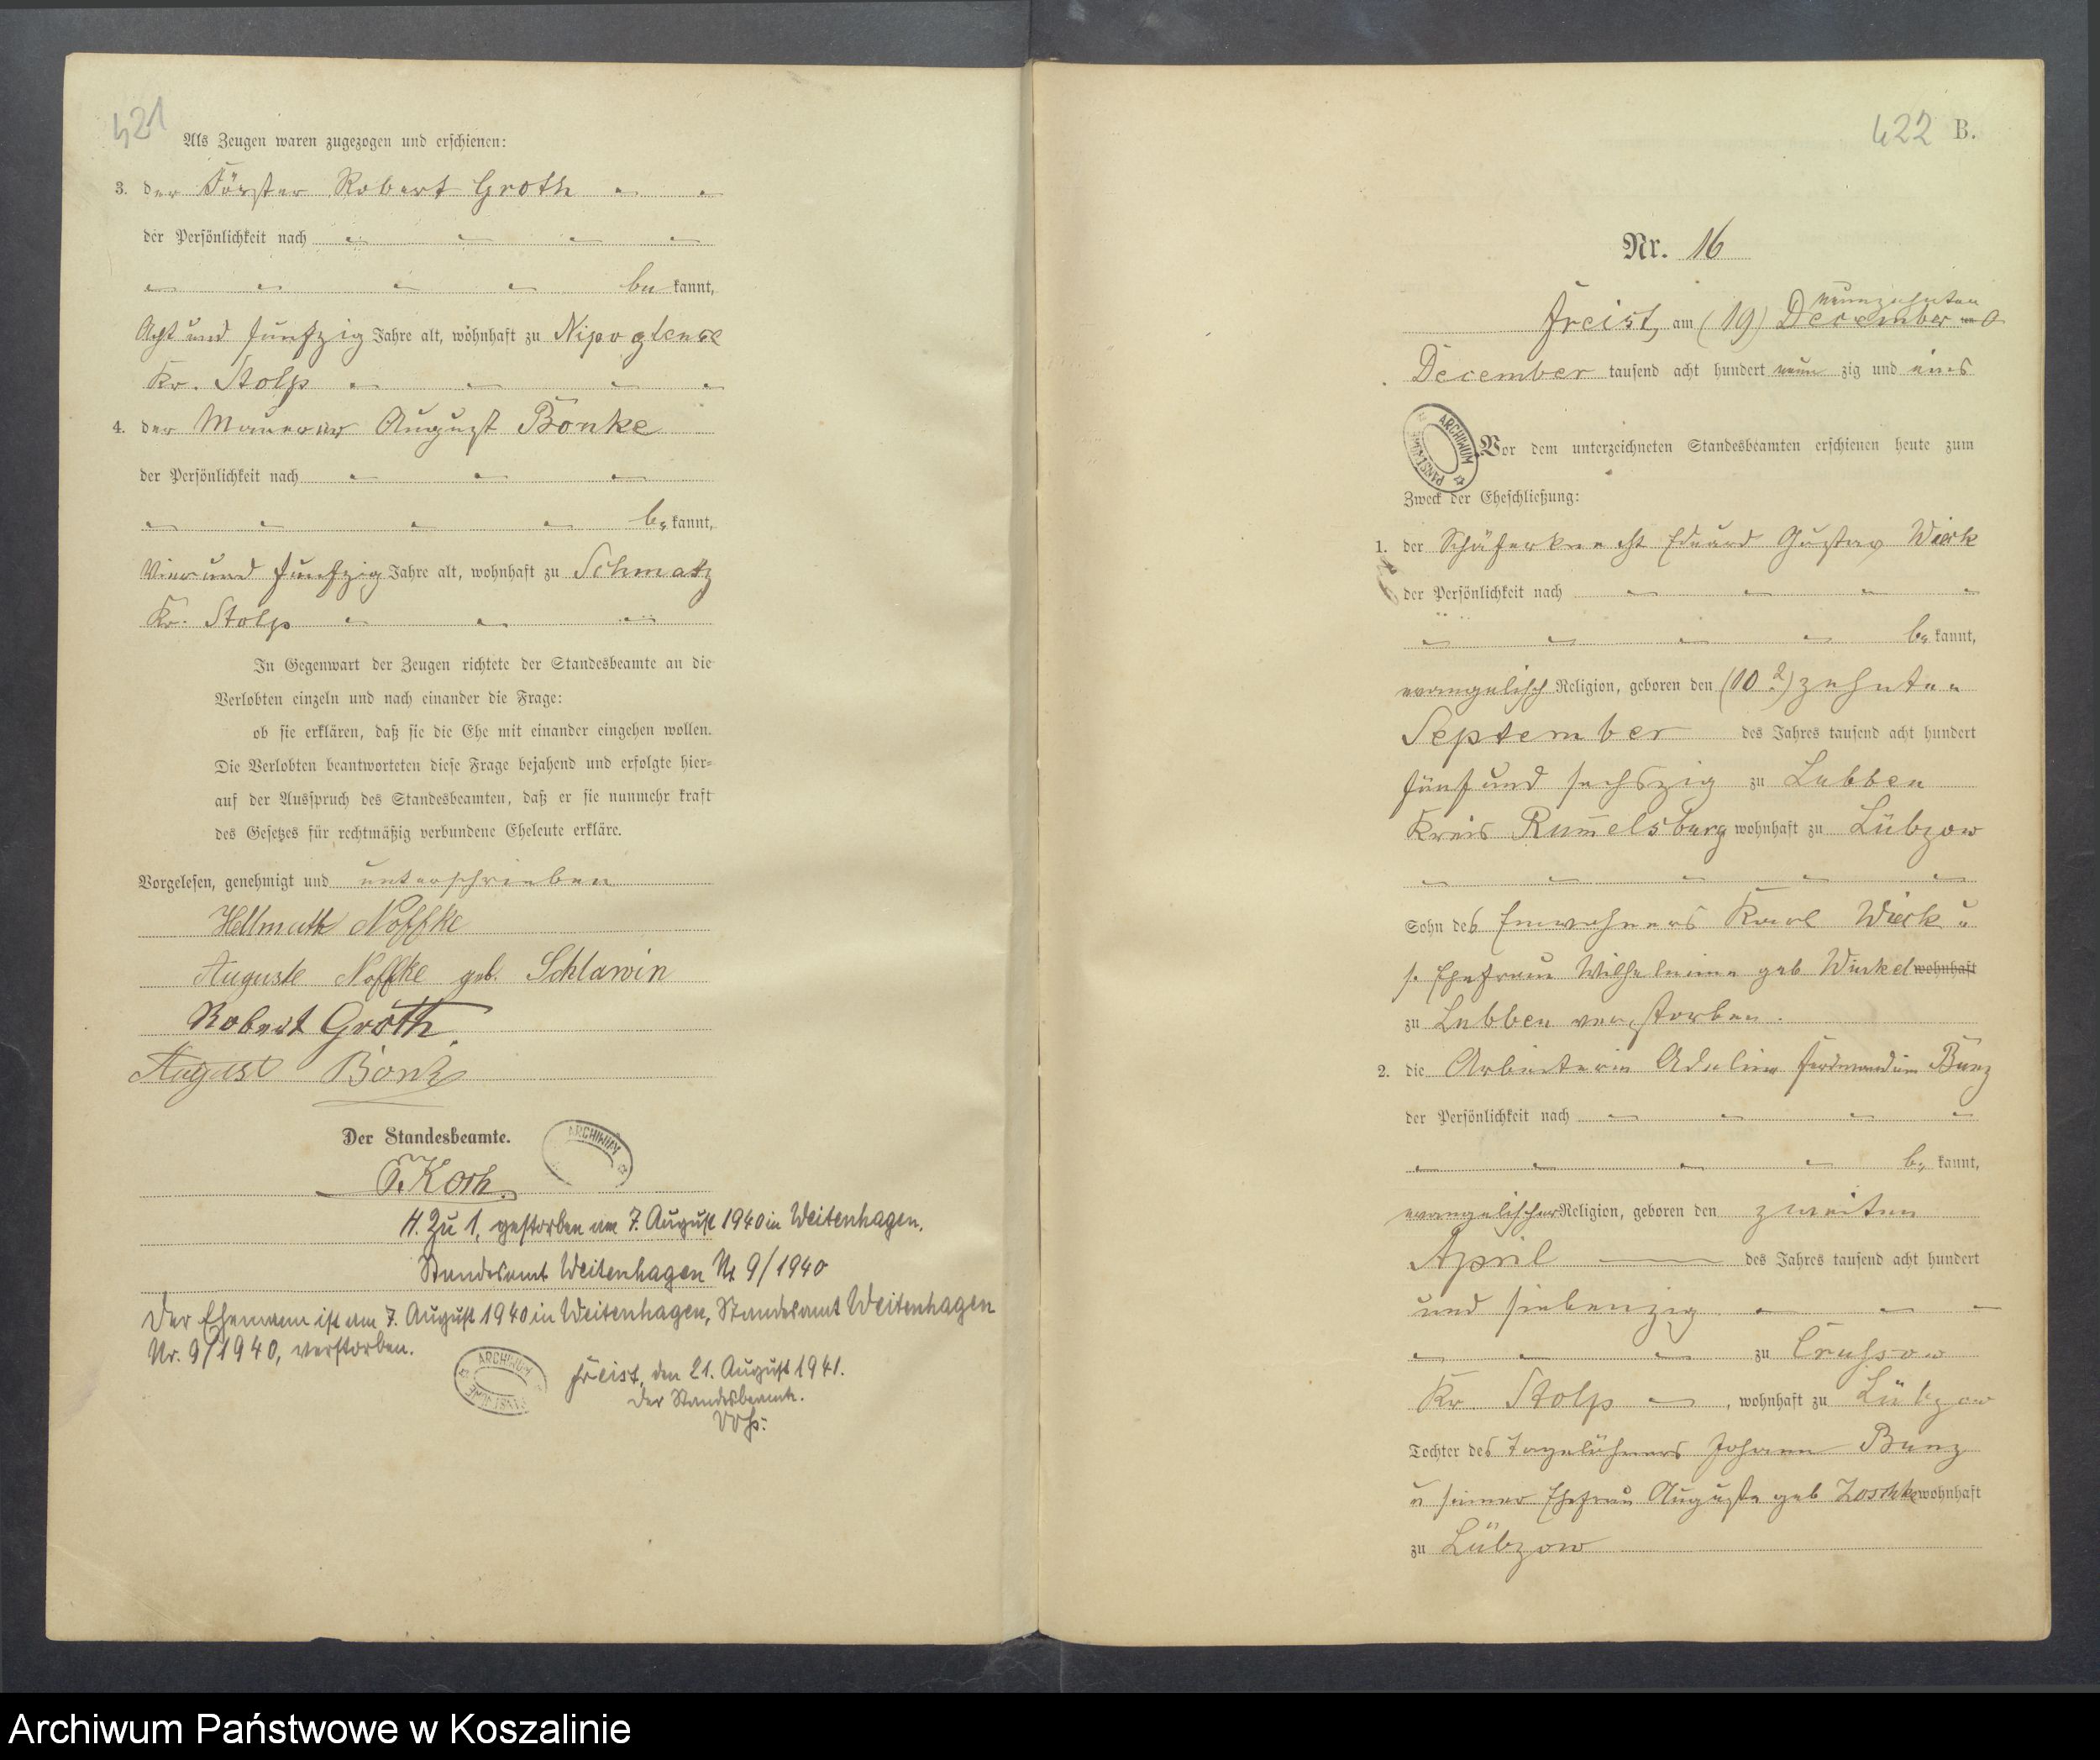 421
Als Zeugen waren zugezogen und erschienen:
3. der Förster Robert Groth
der Persönlichkeit nach
be kannt,
Acht und fünfzig Jahre alt, wohnhaft zu Nipoglense
Kr. Stolp
4. der Maurer August Bonke
der Persönlichkeit nach
be kannt,
Vier und fünfzig Jahre alt, wohnhaft zu Schmatz
Kr. Stolp
In Gegenwart der Zeugen richtete der Standesbeamte an die
Verlobten einzeln und nach einander die Frage:
ob sie erklären, daß sie die Ehe mit einander eingehen wollen.
Die Verlobten beantworteten diese Frage bejahend und erfolgte hier-
auf der Ausspruch des Standesbeamten, daß er sie nunmehr kraft
des Gesetzes für rechtmäßig verbundene Eheleute erkläre.
Vorgelesen, genehmigt und unterschrieben
Hellmuth Noffke
Auguste Noffke geb. Schlawin
Robert Groth.
August Bonk
Der Standesbeamte.
ARCHIWUM
H. Zu 1, gestorben am 7. August 1940 in Weitenhagen.
Standesamt Weitenhagen Nr 9/1940
Der Ehemann ist am 7. August 1940 in Weitenhagen, Standesamt Weitenhagen
Nr. 9/1940, verstorben.
ARCHIWUM
Freist, den 21. August 1941.
Der Standesbeamte.
422 B.
Nr. 16
neunzehnten
Freist, am (19) December
December tausend acht hundert neun zig und eins
ARCHIWUM PAŃSTWOWE
Vor dem unterzeichneten Standesbeamten erschienen heute zum
Zweck der Eheschließung:
1. der Schäferknecht Eduard Gustav Wieck
der Persönlichkeit nach
be kannt,
evangelisch Religion, geboren den (10.) zehnten
September des Jahres tausend acht hundert
fünf und sechszig zu Lubben
Kreis Rummelsburg wohnhaft zu Lübzow
Sohn des Einwohners Karl Wieck u
s. Ehefrau Wilhelmine geb Winkel wohnhaft
zu Lubben verstorben.
2. die Arbeiterin Adeline Ferdinandine Bunz
der Persönlichkeit nach
be kannt,
evangelischer Religion, geboren den zweiten
April des Jahres tausend acht hundert
und siebenzig
zu Crussow
Kr. Stolp, wohnhaft zu Lübzow
Tochter des Tagelöhners Johann Bunz
u seiner Ehefrau Auguste geb Zoschke wohnhaft
zu Lübzow
Archiwum Państwowe w Koszalinie